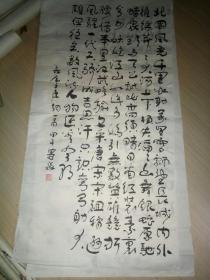 北国风光千里冰封万里雪飘望长城内外
惟余莽莽大河上下顿失滔滔山舞银蛇原驰
蜡象欲与天公试比高须晴日看红装素裹
分外妖娆江山如此多娇引无数英雄竞折
腰惜秦皇汉武略输文采唐宗宋祖稍逊
风骚一代天骄成吉思汗只识弯弓射大
雕俱往矣数风流人物还看今朝